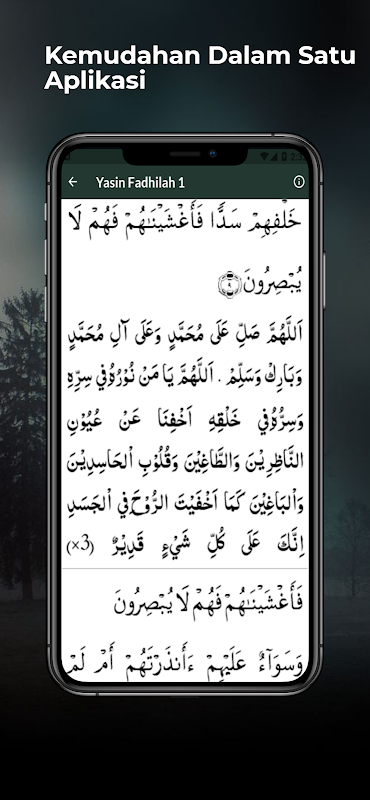 Kemudahan Dalam Satu
Aplikasi
Yasin Fadhilah 1
خَلْفِهِمْ سَدًّا فَأَغْشَيْنَٰهُمْ فَهُمْ لَا
يُبْصِرُونَ ﴿٩﴾
اَللّٰهُمَّ صَلِّ عَلَى مُحَمَّدٍ وَعَلَى آلِ مُحَمَّدٍ
وَبَارِكْ وَسَلِّمْ . اَللّٰهُمَّ يَا مَنْ نُوْرُهُ فِي سِرِّهِ
وَسِرُّهُ فِي خَلْقِهِ اَخْفِنَا عَنْ عُيُوْنِ
النَّاظِرِيْنَ وَالطَّاغِيْنَ وَقُلُوْبِ اْلحَاسِدِيْنَ
وَاْلبَاغِيْنَ كَمَا اَخْفَيْتَ الرُّوْحَ فِي اْلجَسَدِ
اِنَّكَ عَلَى كُلِّ شَيْءٍ قَدِيْرٌ (×3)
فَأَغْشَيْنَٰهُمْ فَهُمْ لَا يُبْصِرُونَ
وَسَوَآءٌ عَلَيْهِمْ ءَأَنذَرْتَهُمْ أَمْ لَمْ